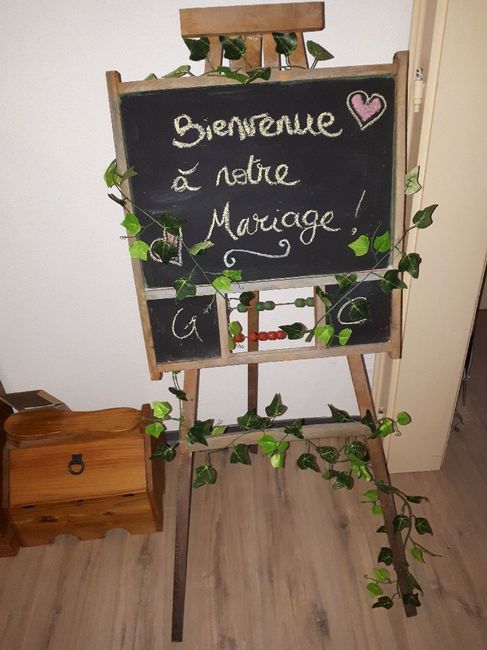 Bienvenue
à notre
Mariage !
G C